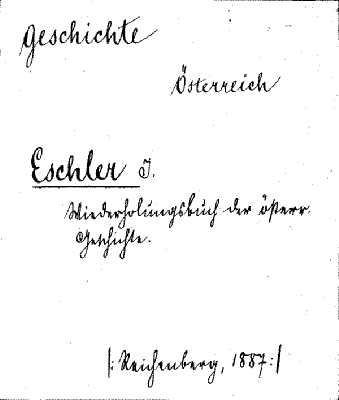 Geschichte
Österreich
Eschler J.
Wiederholungsbuch der österr.
Geschichte.
|: Reichenberg, 1887 :|